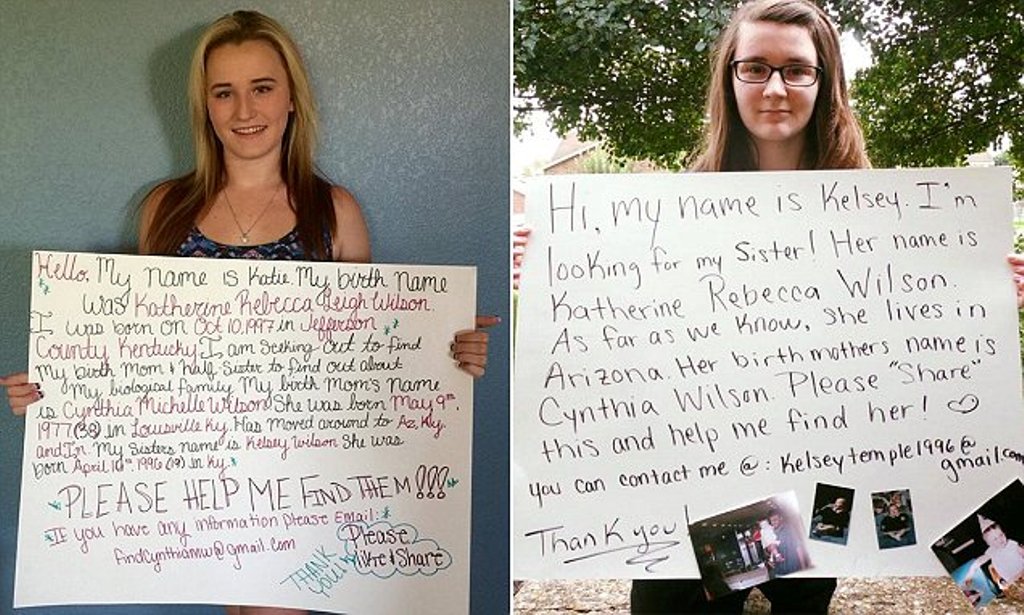 Hello, My name is Katie. My birth name
was Katherine Rebecca Leigh Wilson.
I was born on Oct 10, 1997 in Jefferson
County Kentucky I am seeking out to find
My birth Mom & half sister to find out about
My biological family My birth Mom's name
is Cynthia Michelle Wilson She was born May 9th,
1977 (38) in Louisville Ky. Has moved around to Az, Ky,
and In. My Sisters name is Kelsey Wilson She was
born April 10th 1996 (19) in Ky.
PLEASE HELP ME FIND THEM!!!
If you have any information please Email:
findcynthiamw@gmail.com
THANK
YOU!
Please
like & Share
Hi, my name is Kelsey. I'm
looking for my Sister! Her name is
Katherine Rebecca Wilson.
As far as we know, she lives in
Arizona. Her birth mothers name is
Cynthia Wilson. Please "Share"
this and help me find her!
You can contact me @: Kelseytemple1996@
gmail.com
Thank you!